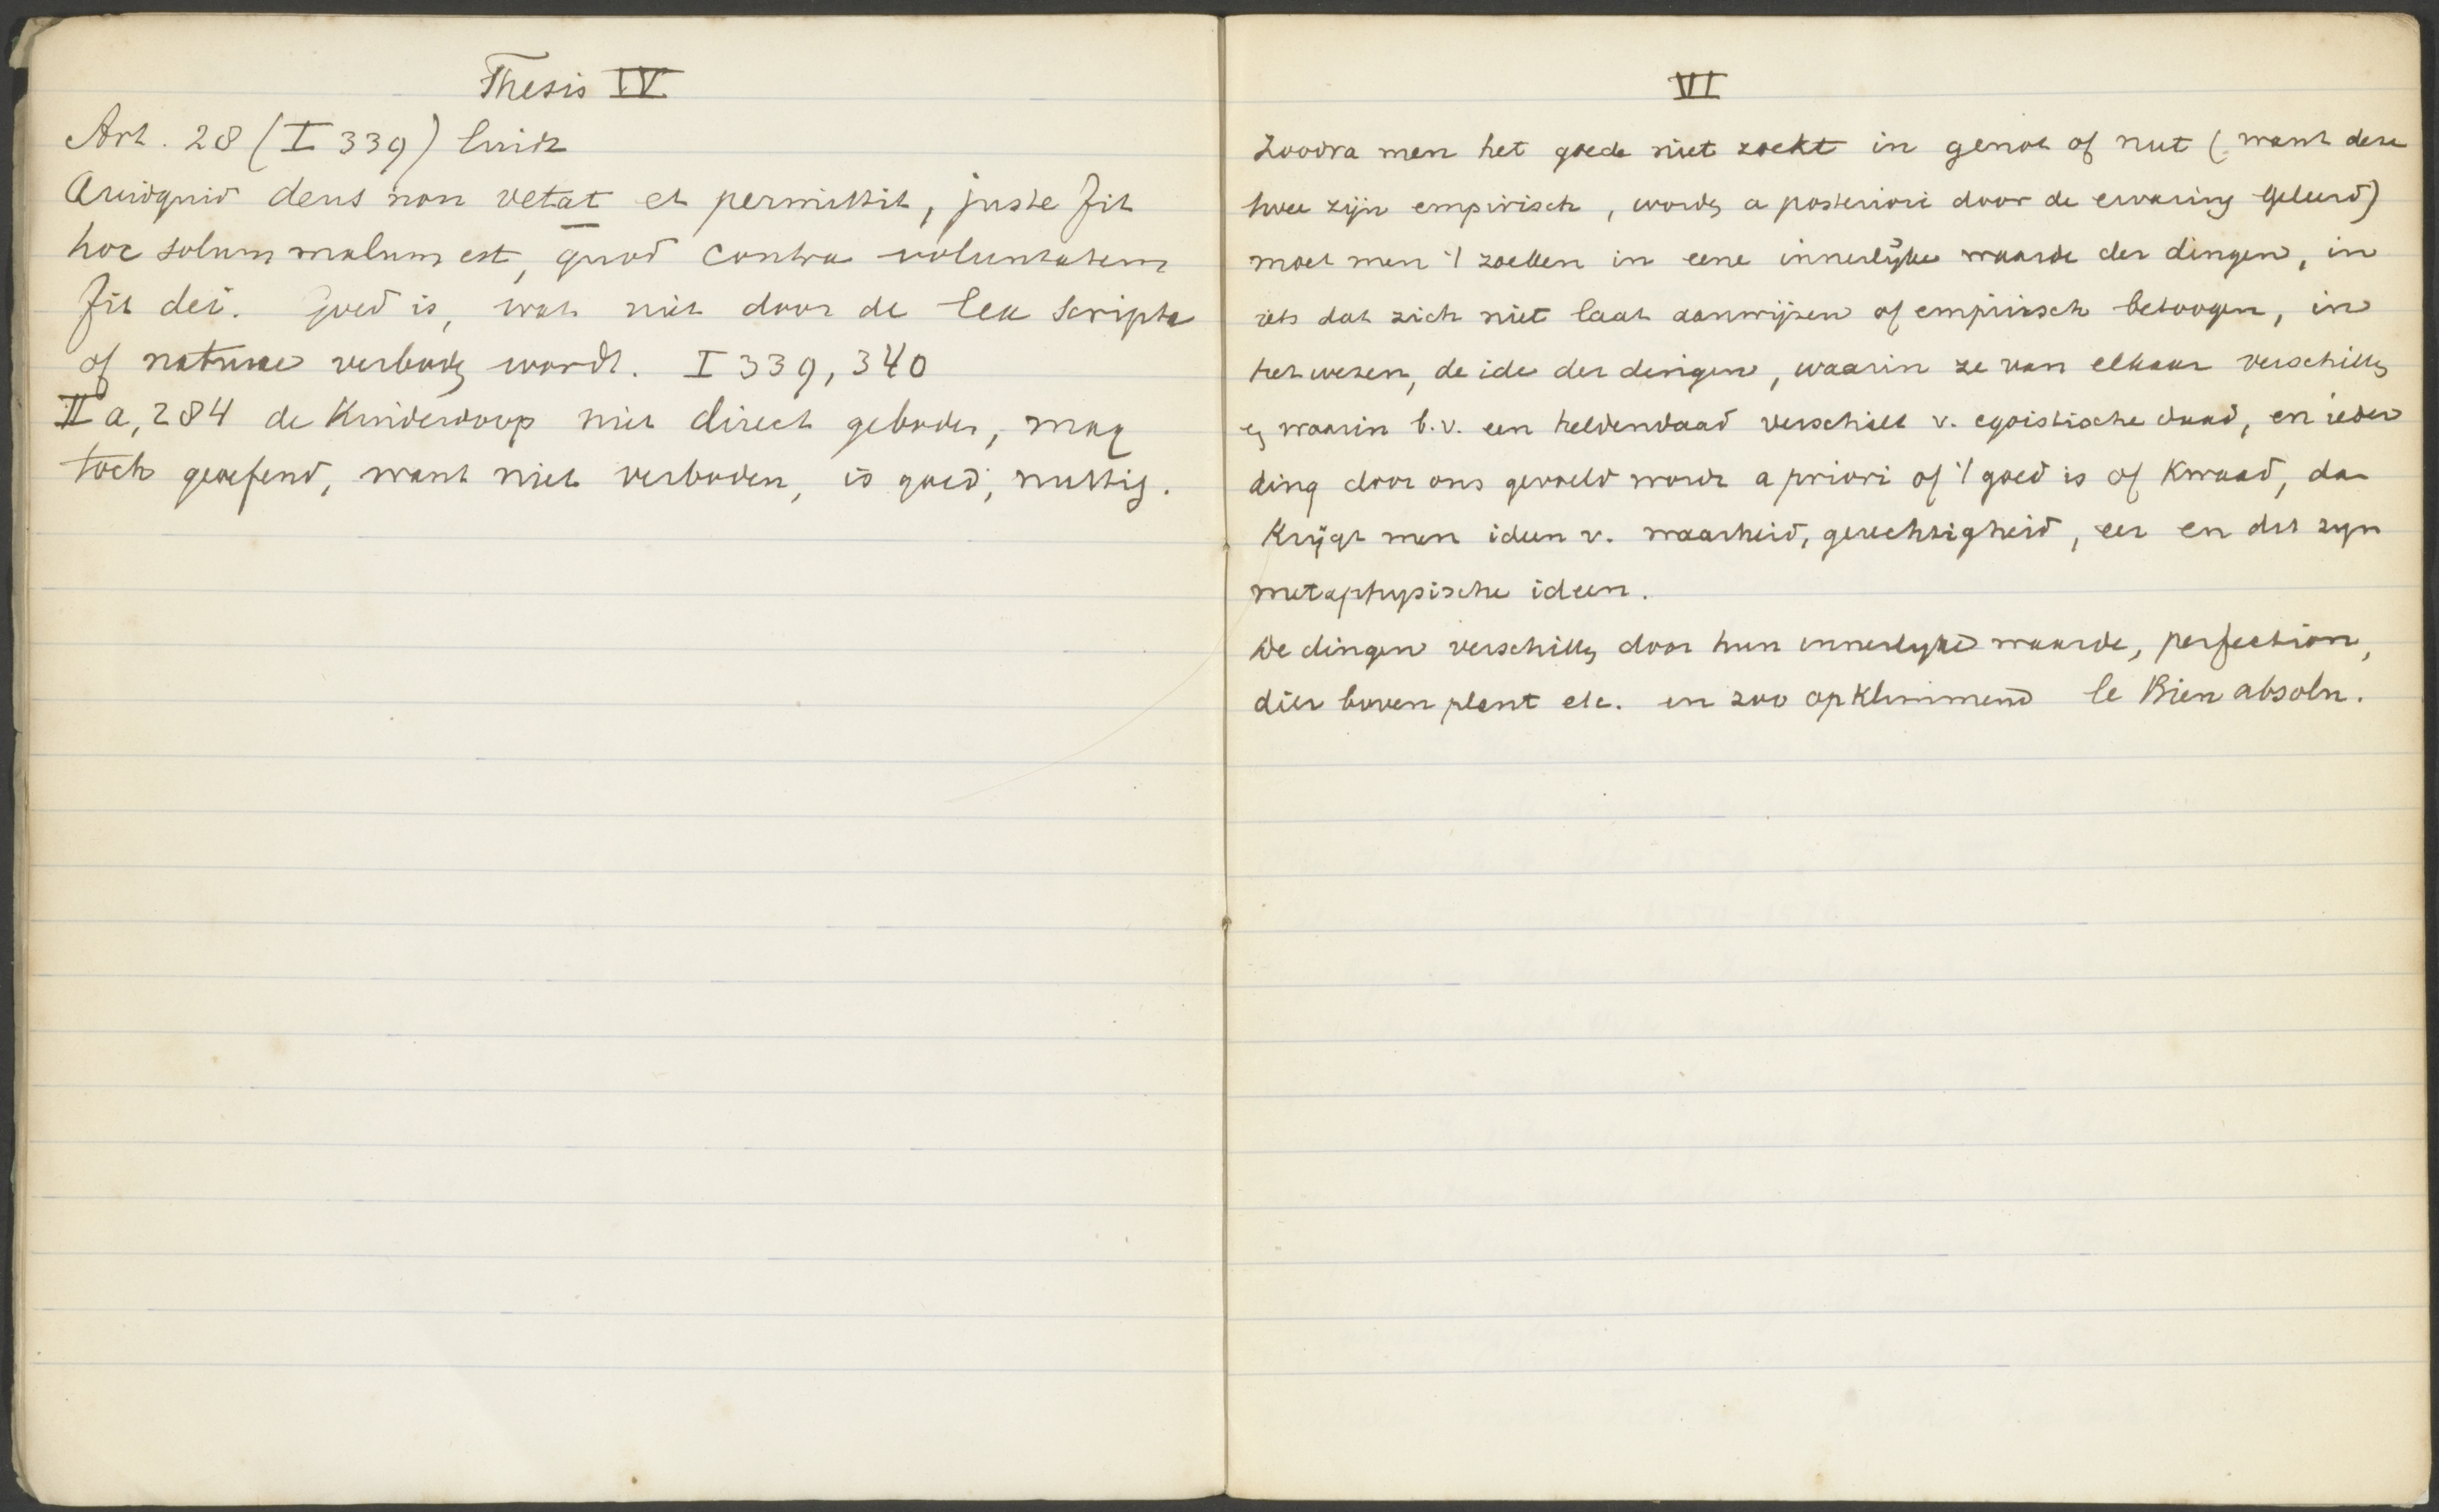 Thesis IV
Art. 28 (I 339) luidt
Quidquid deus non vetat et permittit, juste fit
hoc solum malum est, quod contra voluntatem
fit dei. Goed is, wat niet door de lex scripta
of naturae verboden wordt. I 339, 340
IIa, 284 de Kinderdoop niet direct geboden, mag
toch geoefend, want niet verboden, is goed, nuttig.
VI
Zoodra men het goede niet zoekt in genot of nut (want deze
twee zijn empirisch, worden a posteriori door de ervaring geleerd)
moet men 't zoeken in eene innerlijke waarde der dingen, in
iets dat zich niet laat aanwijzen of empirisch betoogen, in
het wezen, de idee der dingen, waarin ze van elkaar verschillen
en waarin b.v. een heldendaad verschilt v. egoistische daad, en ieder
ding door ons gevoeld wordt a priori of 't goed is of Kwaad, dan
Krijgt men ideen v. waarheid, gerechtigheid, eer en dit zijn
metaphysische ideen.
De dingen verschillen door hun innerlijke waarde, perfection,
dier boven plant etc. en zoo opklimmend le Bien absolu.